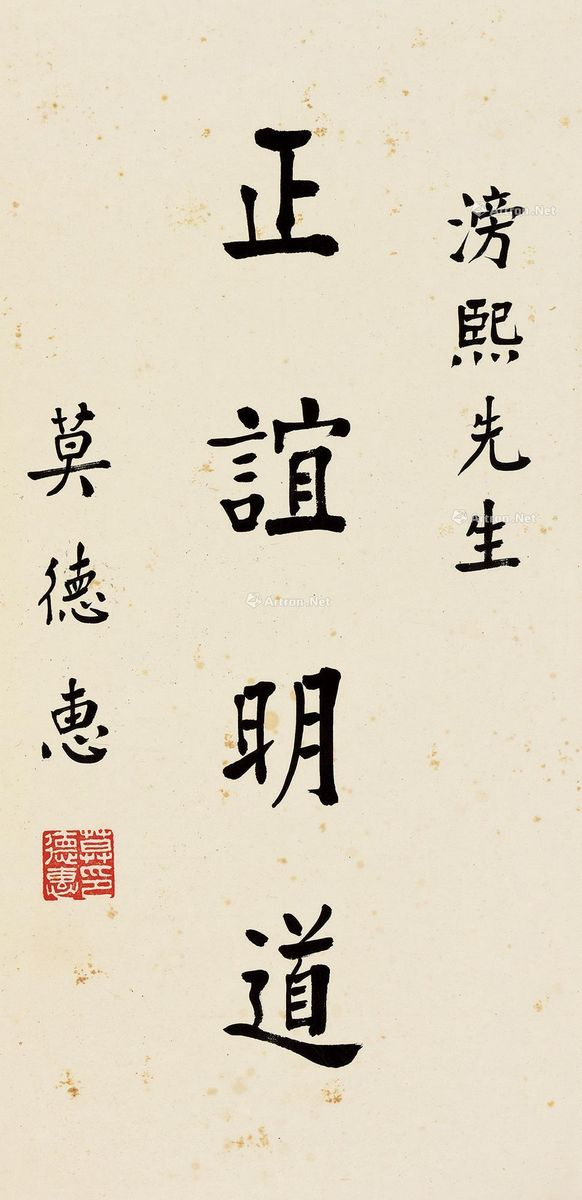 滂熙先生
正誼明道
莫德惠
莫德惠印
Artron.Net
Artron.Net
Artron.Net